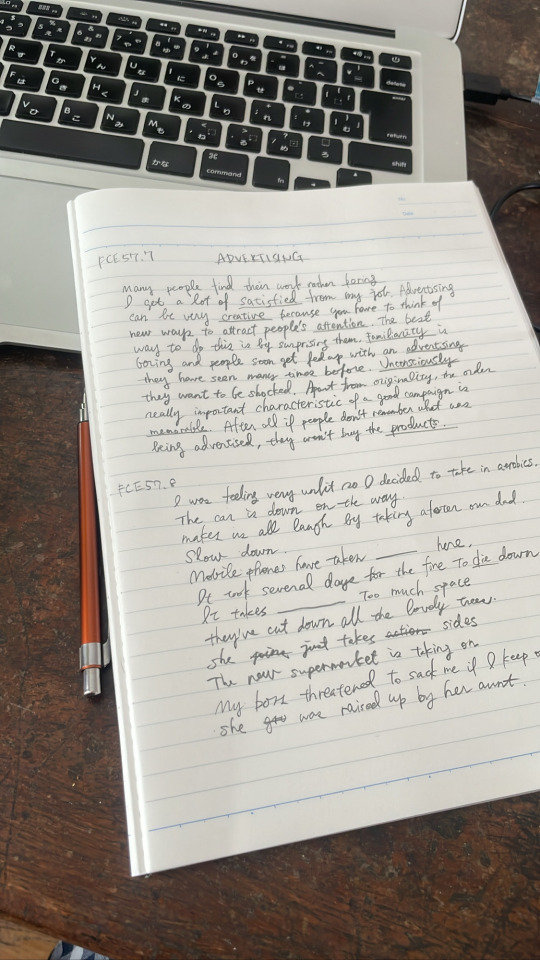 delete
return
shift
command
fn
かな
FCE57.7 ADVERTISING
Many people find their work rather boring
I get a lot of satisfied from my job. Advertising
can be very creative because you have to think of
new ways to attract people's attention. The best
way to do this is by surprising them. Familiarity is
boring and people soon get fed up with an advertising
they have seen many times before. Unconsciously
they want to be shocked. Apart from originality, the order
really important characteristic of a good campaign is
memorable. After all if people don't remember what was
being advertised, they won't buy the products.
FCE57.8
I was feeling very unfit so I decided to take in aerobics.
The car is down on the way.
makes us all laugh by taking after our dad.
Slow down.
Mobile phones have taken ____ here,
It took several days for the fire to die down
It takes ____ too much space
they've cut down all the lovely trees.
she just takes action sides
The new supermarket is taking on
My boss threatened to sack me if I keep
she was raised up by her aunt.